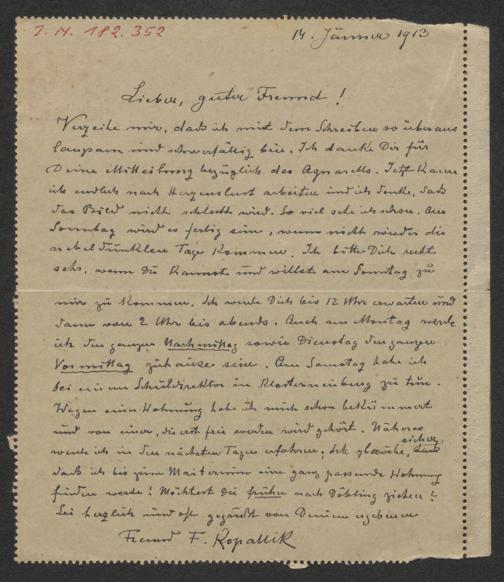 I. N. 182.352
14. Jänner 1913
Lieber, guter Freund!
Verzeihe mir, daß ich mit dem Schreiben so überaus
langsam und schwerfällig bin. Ich danke Dir für
Deine Mitteilung bezüglich des Aquarells. Jetzt kann
ich endlich nach Herzenslust arbeiten und ich denke, daß
das Bild nicht schlecht wird. So viel sehe ich schon. Am
Sonntag wird es fertig sein, wenn nicht wieder die
nebeldunklen Tage kommen. Ich bitte Dich recht
sehr, wenn Du kannst und willst am Sonntag zu
mir zu kommen. Ich werde Dich bis 12 Uhr erwarten und
dann von 2 Uhr bis abends. Auch am Montag werde
ich den ganzen Nachmittag sowie Dienstag den ganzen
Vormittag zuhause sein. Am Samstag habe ich
bei einem Schuldirektor in Klosterneuburg zu tun.
Wegen einer Wohnung habe ich mich schon bekümmert
und von einer, die erst frei werden wird gehört. Näheres
werde ich in den nächsten Tagen erfahren. Ich glaube, sicher,
daß ich bis zum Maitermin eine ganz passende Wohnung
finden werde! Möchtest Du früher nach Döbling ziehen?
Sei herzlich und oft gegrüßt von Deinem ergebenen
Freund F. Kopallik